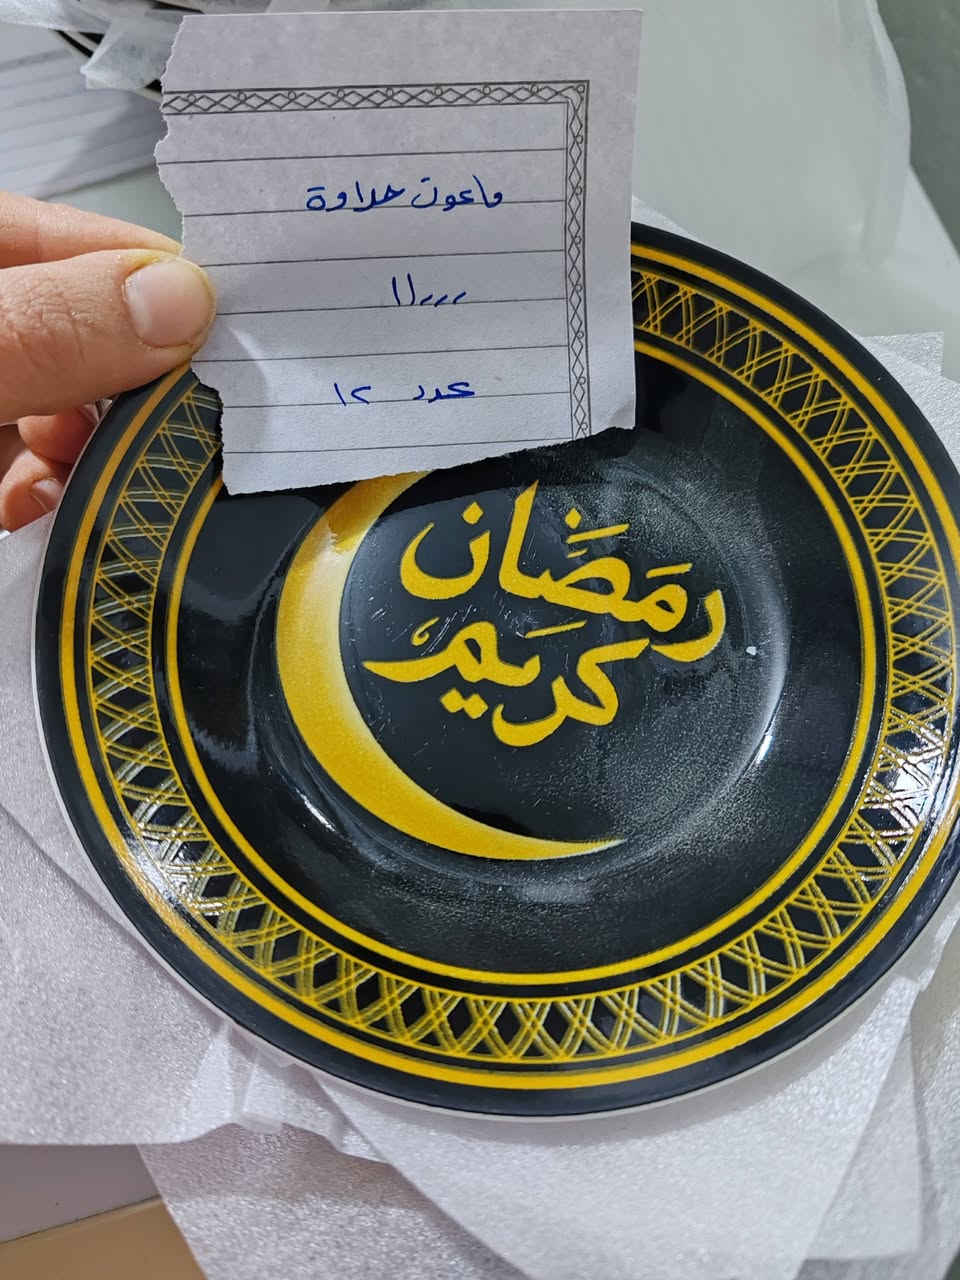 ماعون حلاوة
١١٠٠٠
عدد ١٢
رمضان
كريم